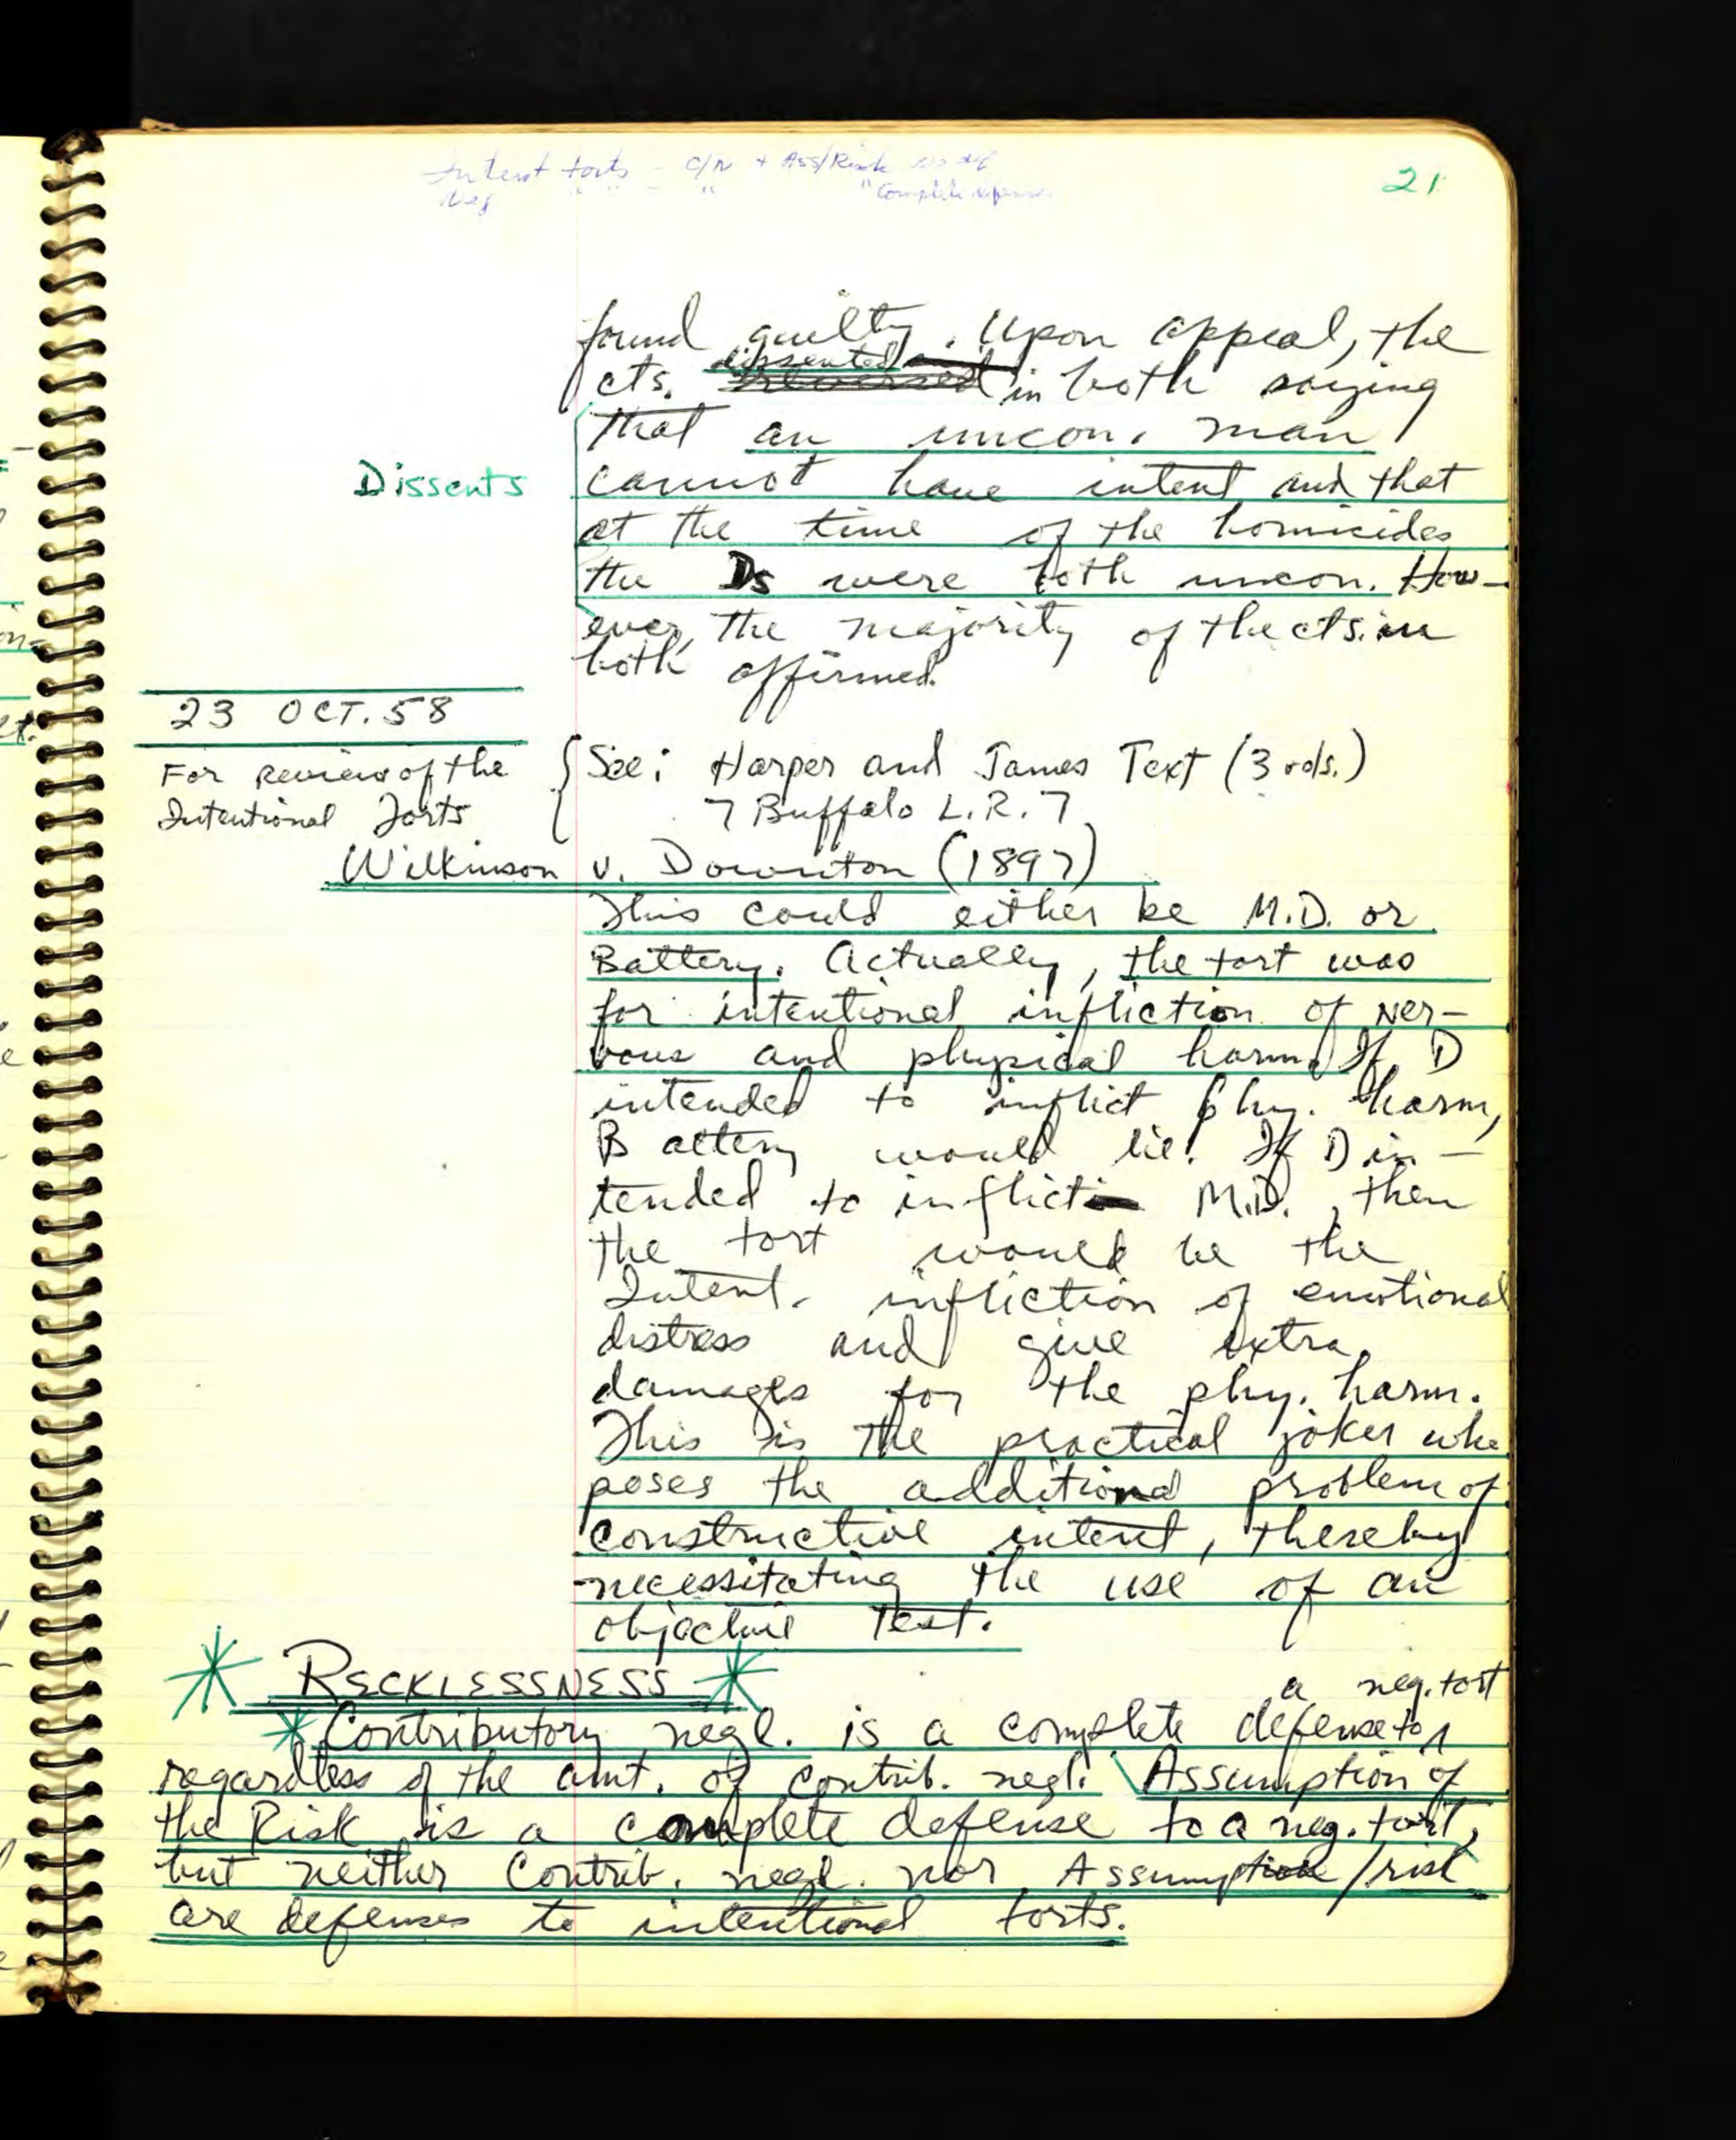 Intent torts - C/N + Ass/Risk no def
Neg " " - " " Complete
21
found guilty. Upon appeal, the
cts. dissented in both saying
that an uncon. man
Dissents
cannot have intent and that
at the time of the homicides
the Ds were both uncon. How-
ever, the majority of the cts. in
both affirmed.
23 OCT. 58
For Review of the
Intentional Torts
{ See: Harper and James Text (3 vols.)
7 Buffalo L.R. 7
Wilkinson v. Downton (1897)
This could either be M.D. or
Battery. Actually, the tort was
for intentional infliction of ner-
vous and physical harm. If D
intended to inflict phy. harm,
Battery would lie. If D in-
tended to inflict M.D., then
the tort would be the
Intent. infliction of emotional
distress and give extra
damages for the phy. harm.
This is the practical joker who
poses the additional problem of
constructive intent, thereby
necessitating the use of an
objective test.
* RECKLESSNESS *
a neg. tort
* Contributory negl. is a complete defense to ^
regardless of the amt. of contrib. negl. \ Assumption of
the Risk is a complete defense to a neg. tort,
but neither Contrib. negl. nor Assumption/risk
are defenses to intentional torts.